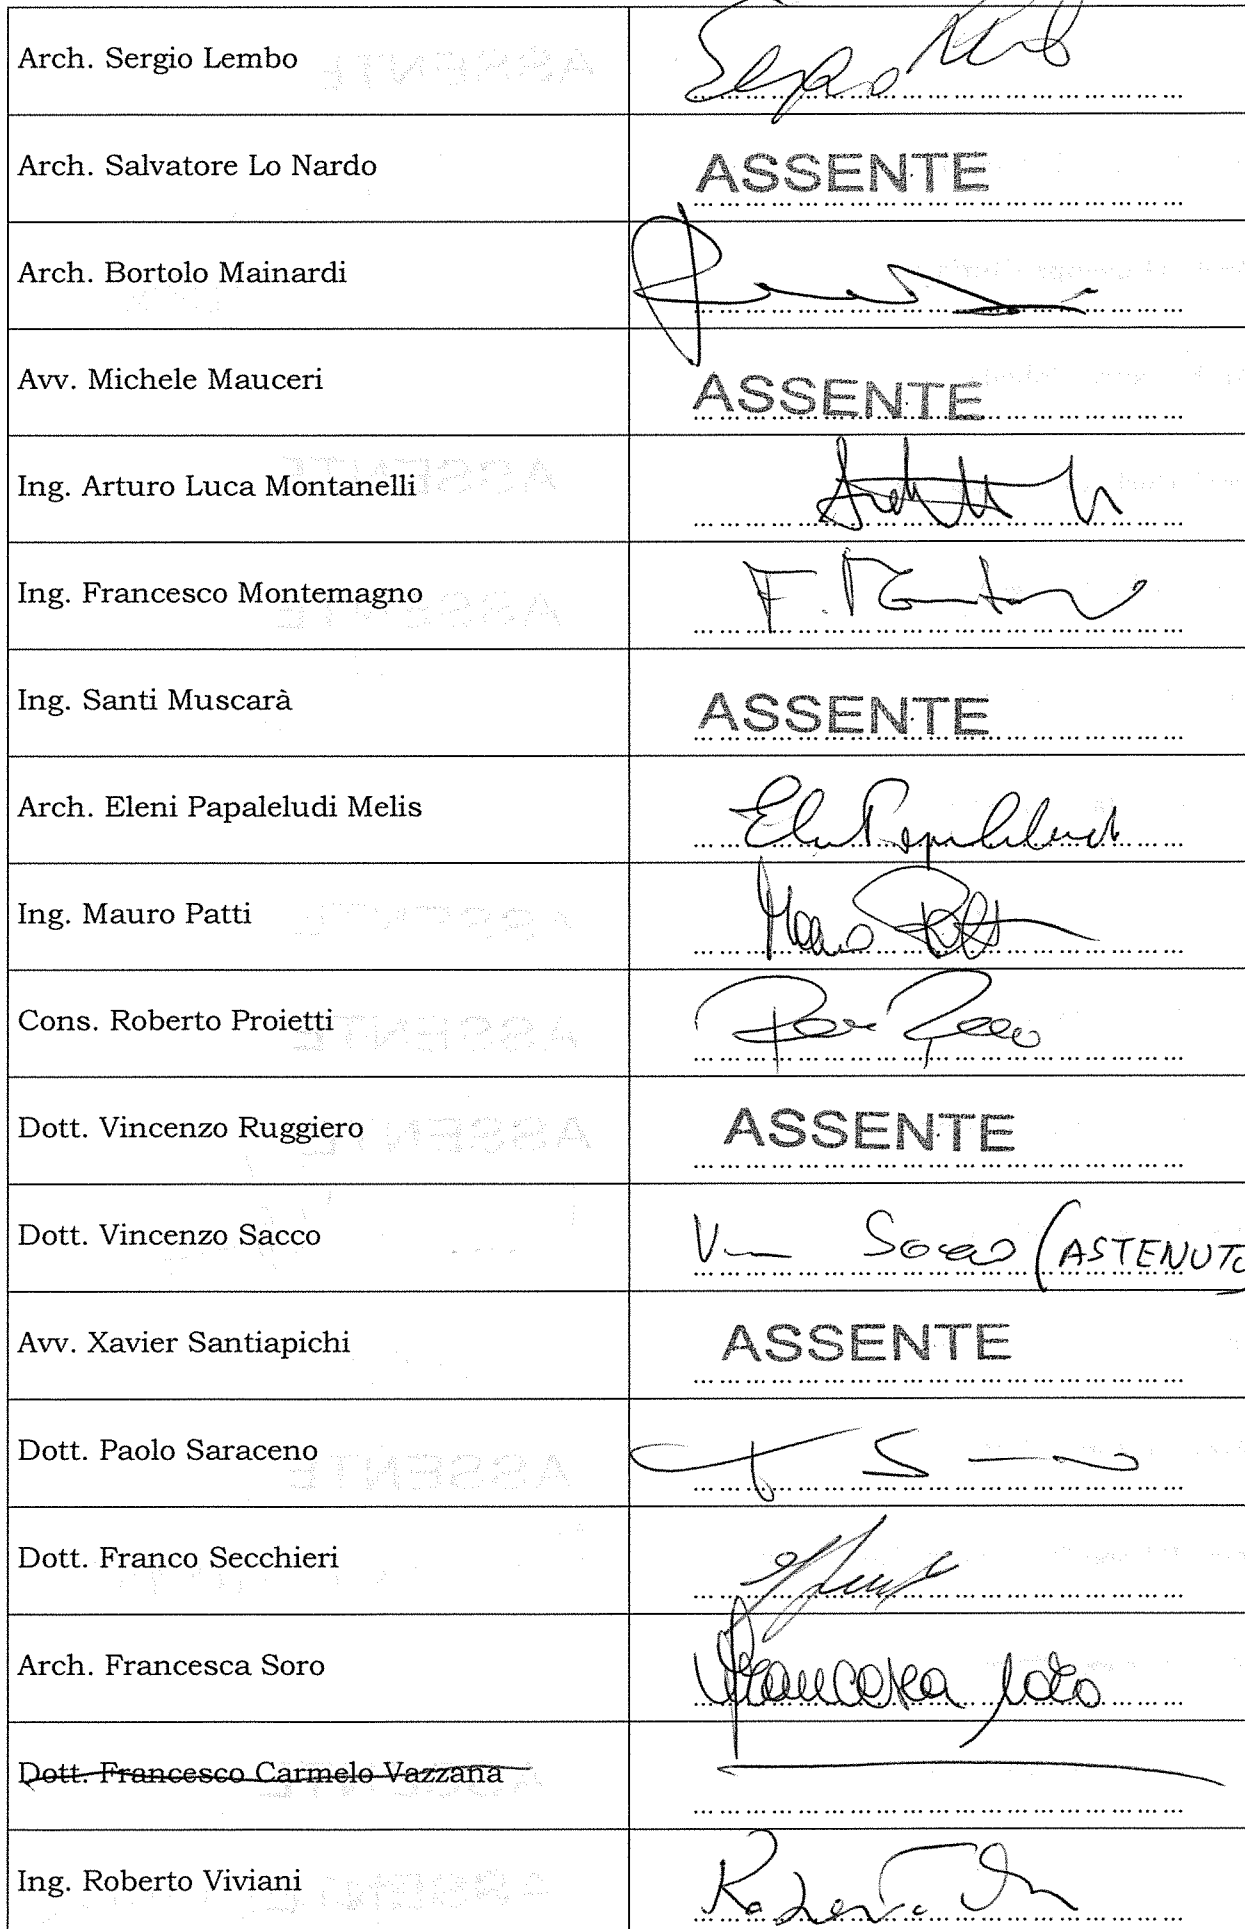 Arch. Sergio Lembo
Arch. Salvatore Lo Nardo ASSENTE
Arch. Bortolo Mainardi
Avv. Michele Mauceri ASSENTE
Ing. Arturo Luca Montanelli
Ing. Francesco Montemagno
Ing. Santi Muscarà ASSENTE
Arch. Eleni Papaleludi Melis
Ing. Mauro Patti
Cons. Roberto Proietti
Dott. Vincenzo Ruggiero ASSENTE
Dott. Vincenzo Sacco (ASTENUTO
Avv. Xavier Santiapichi ASSENTE
Dott. Paolo Saraceno
Dott. Franco Secchieri
Arch. Francesca Soro Francesca Soro
Dott. Francesco Carmelo Vazzana
Ing. Roberto Viviani